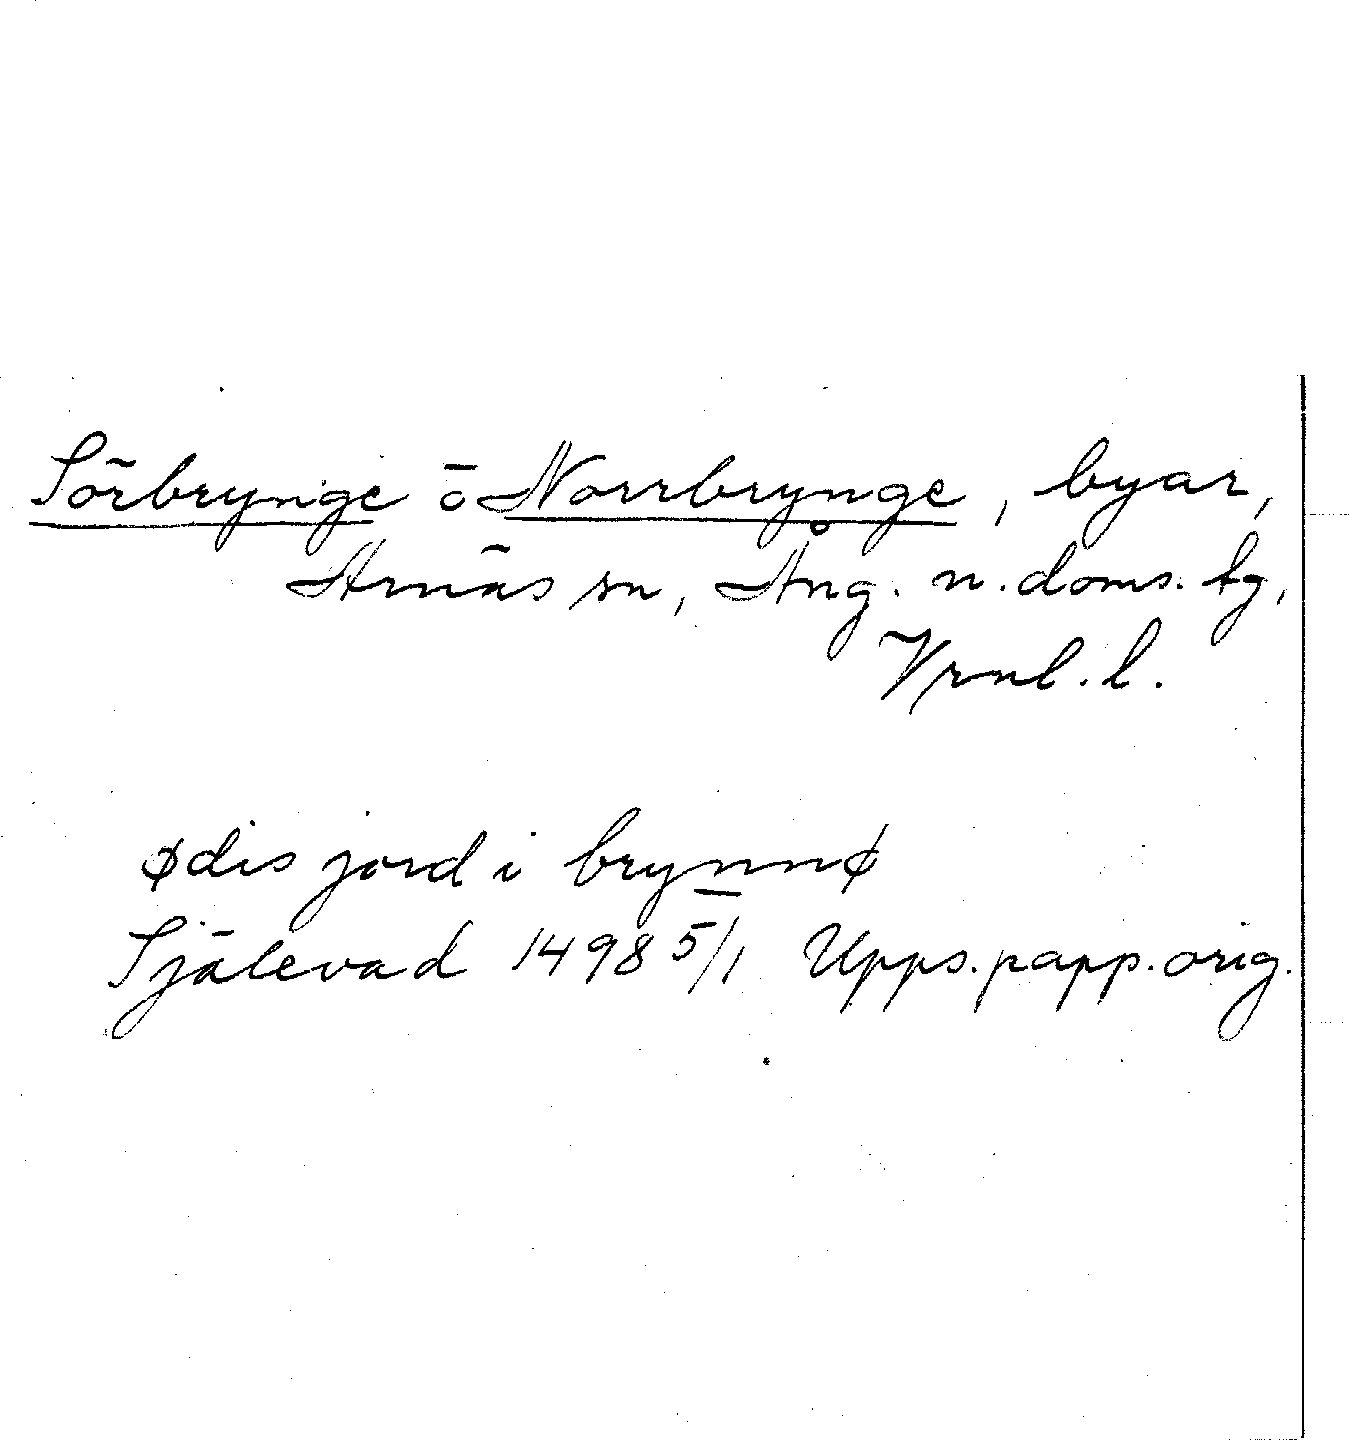 Sörbrynge o Norrbrynge, byar,
Arnäs sn, Ång. n. doms. tg,
Vrnl. l.
ødis jord i brynnø
Själevad 1498 5/1 Upps. papp. orig.